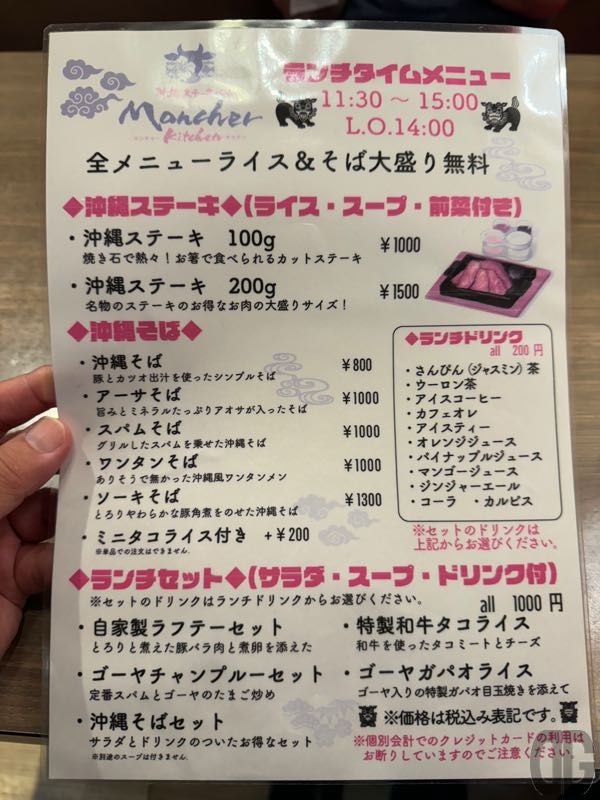 Mancher
Kitchen
ランチタイムメニュー
11:30 ～ 15:00
L.O.14:00
全メニューライス＆そば大盛り無料
◆沖縄ステーキ◆(ライス・スープ・前菜付き)
・沖縄ステーキ 100g ¥1000
焼き石で熱々！お箸で食べられるカットステーキ
・沖縄ステーキ 200g ¥1500
名物のステーキのお得なお肉の大盛りサイズ！
◆沖縄そば◆
・沖縄そば ¥800
豚とカツオ出汁を使ったシンプルそば
・アーサそば ¥1000
旨みとミネラルたっぷりアオサが入ったそば
・スパムそば ¥1000
グリルしたスパムを乗せた沖縄そば
・ワンタンそば ¥1000
ありそうで無かった沖縄風ワンタンメン
・ソーキそば ¥1300
とろりやわらかな豚角煮をのせた沖縄そば
・ミニタコライス付き +¥200
※単品での注文はできません。
◆ランチドリンク
all 200円
・さんぴん（ジャスミン）茶
・ウーロン茶
・アイスコーヒー
・カフェオレ
・アイスティー
・オレンジジュース
・パイナップルジュース
・マンゴージュース
・ジンジャーエール
・コーラ ・カルピス
※セットのドリンクは
上記からお選びください。
◆ランチセット◆(サラダ・スープ・ドリンク付)
※セットのドリンクはランチドリンクからお選びください。 all 1000円
・自家製ラフテーセット
とろりと煮えた豚バラ肉と煮卵を添えた
・ゴーヤチャンプルーセット
定番スパムとゴーヤのたまご炒め
・沖縄そばセット
サラダとドリンクのついたお得なセット
※別途のスープは付きません。
・特製和牛タコライス
和牛を使ったタコミートとチーズ
・ゴーヤガパオライス
ゴーヤ入りの特製ガパオ目玉焼きを添えて
※価格は税込み表記です。
※個別会計でのクレジットカードの利用は
お断りしていますのでご注意ください。